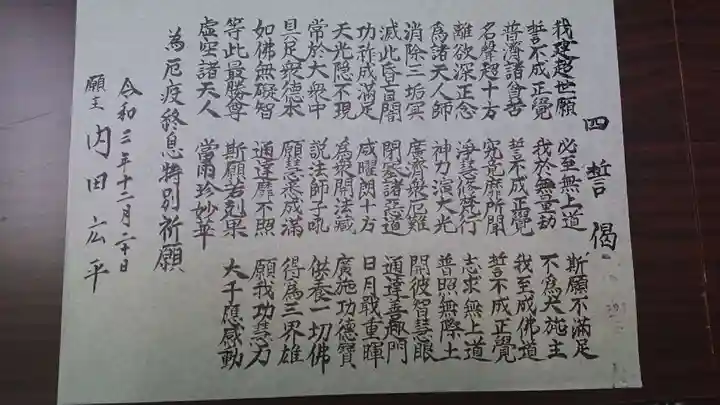 四誓偈
我建超世願 必至無上道 斯願不滿足
誓不成正覺 我於無量劫 不為大施主
普濟諸貧苦 誓不成正覺 我至成佛道
名聲超十方 究竟靡所聞 誓不成正覺
離欲深正念 淨慧修梵行 志求無上道
為諸天人師 神力演大光 普照無際土
消除三垢冥 廣濟衆厄難 開彼智慧眼
滅此昏盲闇 閉塞諸惡道 通達善趣門
功祚成滿足 威曜朗十方 日月戢重暉
天光隠不現 為衆開法藏 廣施功德寶
常於大衆中 説法師子吼 供養一切佛
具足衆德本 願慧悉成滿 得為三界雄
如佛無礙智 通達靡不照 願我功慧力
等此最勝尊 斯願若剋果 大千應感動
虚空諸天人 當雨珍妙華
為厄疫終息特別祈願
令和三年十二月二十日
願主 内田広平